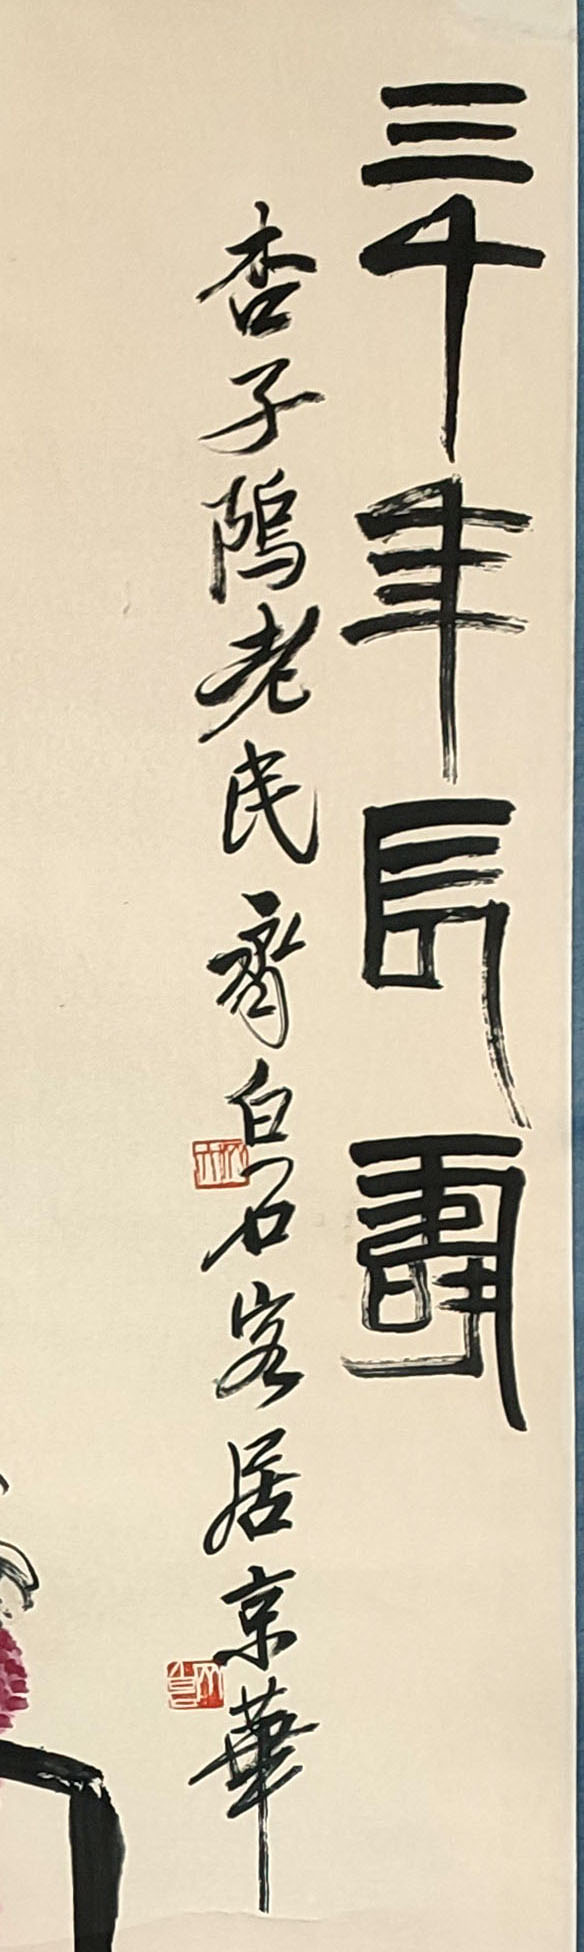 三千年長壽
杏子隖老民齊白石客居京華